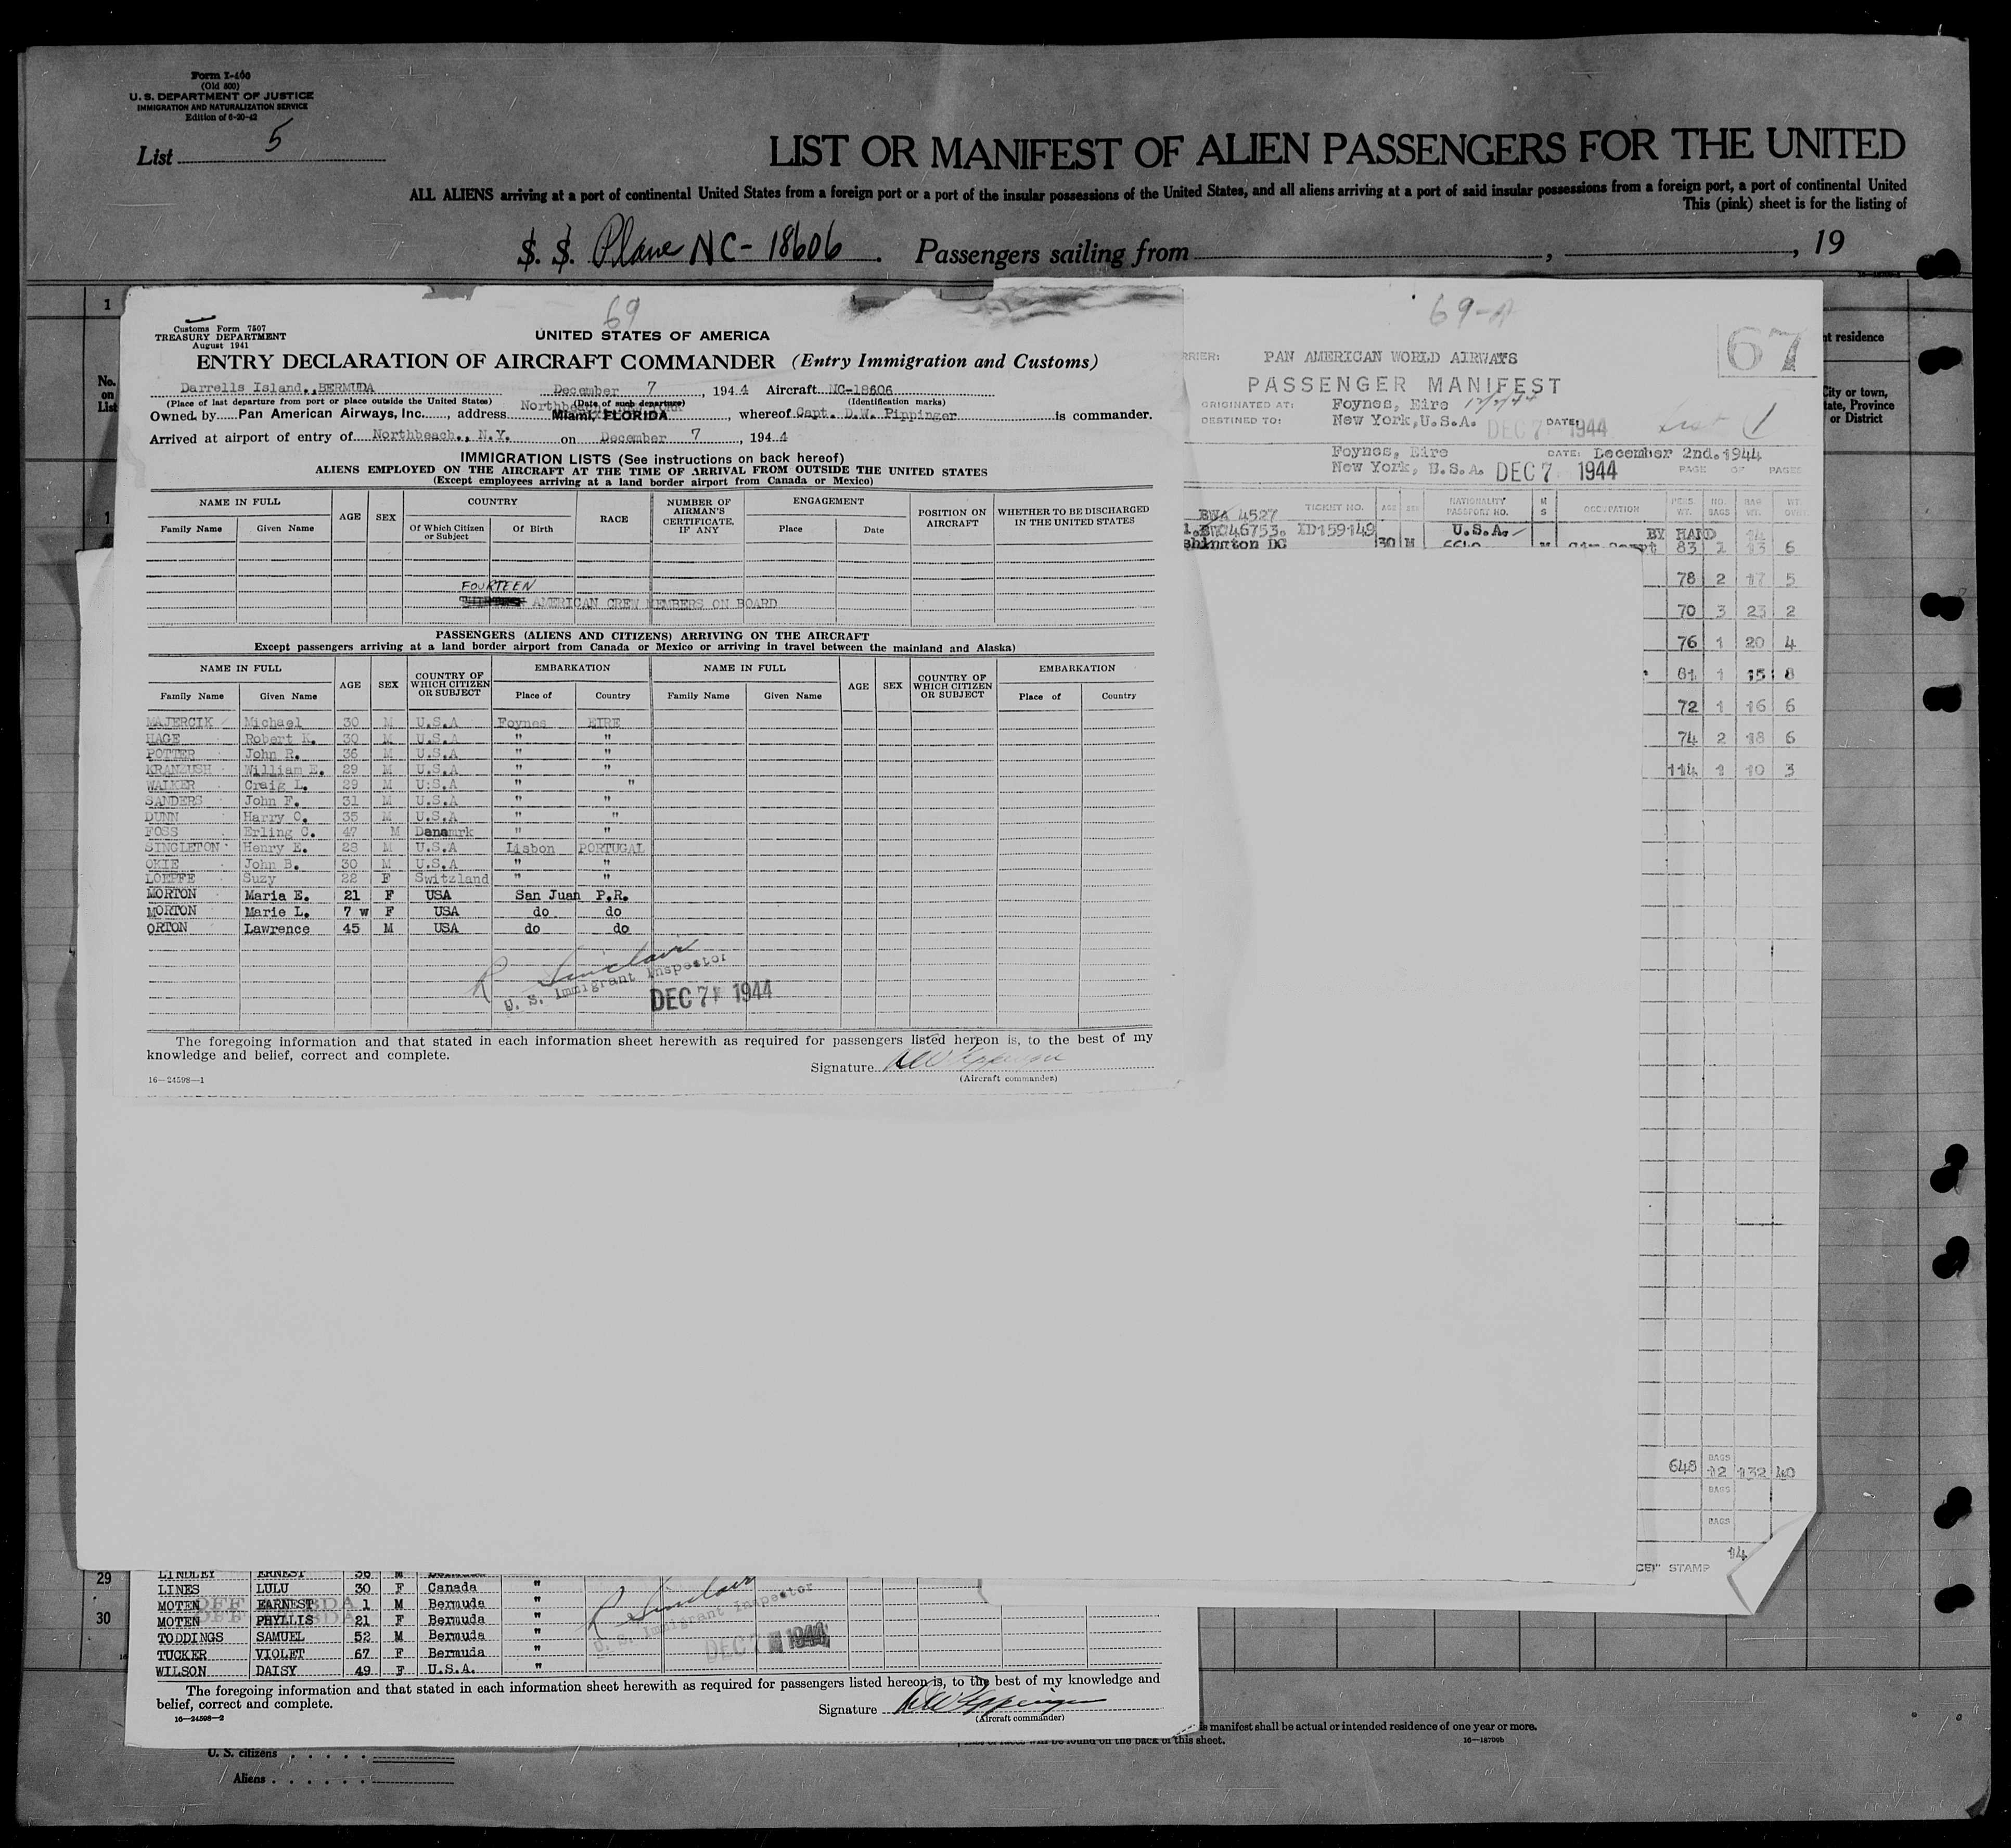 Form I-400
(Old 500)
U. S. DEPARTMENT OF JUSTICE
IMMIGRATION AND NATURALIZATION SERVICE
Edition of 6-20-42
List 5
LIST OR MANIFEST OF ALIEN PASSENGERS FOR THE UNITED
ALL ALIENS arriving at a port of continental United States from a foreign port or a port of the insular possessions of the United States, and all aliens arriving at a port of said insular possessions from a foreign port, a port of continental United
This (pink) sheet is for the listing of
S. S. Plane NC-18606. Passengers sailing from , , 19
1
No. on List
1
69
Customs Form 7507
TREASURY DEPARTMENT
August 1941
UNITED STATES OF AMERICA
ENTRY DECLARATION OF AIRCRAFT COMMANDER (Entry Immigration and Customs)
Darrells Island,,BERMUDA December 7, 1944 Aircraft NC-18606
(Place of last departure from port or place outside the United States) (Date of such departure) (Identification marks)
Owned by Pan American Airways, Inc., address Miami, FLORIDA whereof Capt. D.W. Pippinger is commander.
Arrived at airport of entry of Northbeach., N.Y. on December 7, 1944
IMMIGRATION LISTS (See instructions on back hereof)
ALIENS EMPLOYED ON THE AIRCRAFT AT THE TIME OF ARRIVAL FROM OUTSIDE THE UNITED STATES
(Except employees arriving at a land border airport from Canada or Mexico)
NAME IN FULL AGE SEX COUNTRY RACE NUMBER OF AIRMAN'S CERTIFICATE, IF ANY ENGAGEMENT POSITION ON AIRCRAFT WHETHER TO BE DISCHARGED IN THE UNITED STATES
Family Name Given Name Of Which Citizen or Subject Of Birth Place Date
FOURTEEN
AMERICAN CREW MEMBERS ON BOARD
PASSENGERS (ALIENS AND CITIZENS) ARRIVING ON THE AIRCRAFT
Except passengers arriving at a land border airport from Canada or Mexico or arriving in travel between the mainland and Alaska)
NAME IN FULL AGE SEX COUNTRY OF WHICH CITIZEN OR SUBJECT EMBARKATION NAME IN FULL AGE SEX COUNTRY OF WHICH CITIZEN OR SUBJECT EMBARKATION
Family Name Given Name Place of Country Family Name Given Name Place of Country
MAJERCIK Michael 30 M U.S.A Foynes EIRE
HAGE Robert K. 30 M U.S.A " "
POTTER John R. 36 M U.S.A " "
KRANZUSH William E. 29 M U.S.A " "
WALKER Craig L. 29 M U.S.A " "
SANDERS John F. 31 M U.S.A " "
DUNN Harry O. 35 M U.S.A " "
FOSS Erling C. 47 M Danamrk " "
SINGLETON Henry E. 28 M U.S.A Lisbon PORTUGAL
OKIE John B. 30 M U.S.A " "
LOEPFE Suzy 22 F Switzland " "
MORTON Maria E. 21 F USA San Juan P.R.
MORTON Marie L. 7 w F USA do do
ORTON Lawrence 45 M USA do do
R Sinclair
U. S. Immigrant Inspector
DEC 7 1944
The foregoing information and that stated in each information sheet herewith as required for passengers listed hereon is, to the best of my
knowledge and belief, correct and complete.
Signature
(Aircraft commander)
16—24598—1
69-A
67
RRIER: PAN AMERICAN WORLD AIRWAYS
PASSENGER MANIFEST
ORIGINATED AT: Foynes, Eire 12/2/44
DESTINED TO: New York,U.S.A. DEC 7 DATE: 1944
Foynes, Eire DATE: December 2nd.1944
New York, U.S.A. DEC 7 1944 PAGE OF PAGES
TICKET NO. AGE SEX NATIONALITY PASSPORT NO. M S OCCUPATION PERS. WT. NO. BAGS BAG WT. WT OVER
BWA 4527
46753. ED159149 U.S.A. BY HAND 14
shington DC 30 M M 83 2 13 6
78 2 17 5
70 3 23 2
76 1 20 4
61 1 15 8
72 1 16 6
74 2 18 6
114 1 10 3
648 BAGS 12 132 40
BAGS
BAGS
14
CE" STAMP
nt residence
City or town, tate, Province or District
29
30
LINDLEY ERNEST 56 M
LINES LULU 30 F Canada "
MOTEN EARNEST 1 M Bermuda "
MOTEN PHYLLIS 21 F Bermuda "
TODDINGS SAMUEL 52 M Bermuda "
TUCKER VIOLET 67 F Bermuda "
WILSON DAISY 49 F U.S.A. "
OFF BDA
OFF BDA
R Sinclair
U. S. Immigrant Inspector
DEC 7 1944
The foregoing information and that stated in each information sheet herewith as required for passengers listed hereon is, to the best of my knowledge and
belief, correct and complete.
Signature DW Pippinger
(Aircraft commander)
16—24598—2
s manifest shall be actual or intended residence of one year or more.
will be found on the back of this sheet.
16—18700b
U. S. citizens
Aliens